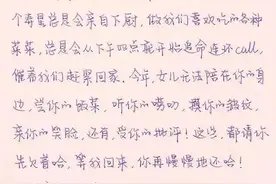 个弄总是会亲自下厨，做我们喜欢吃的各种
菜菜，总是会从下午四点就开始追命连环call，
催着我们赶紧回家，今年，女儿无法陪在你的身
边，尝你的饭菜，听你的唠叨，摸你的皱纹，
亲你的笑脸，还有，受你的批评！这些，都请你
先欠着哈，等我回来，你再慢慢地还哈！